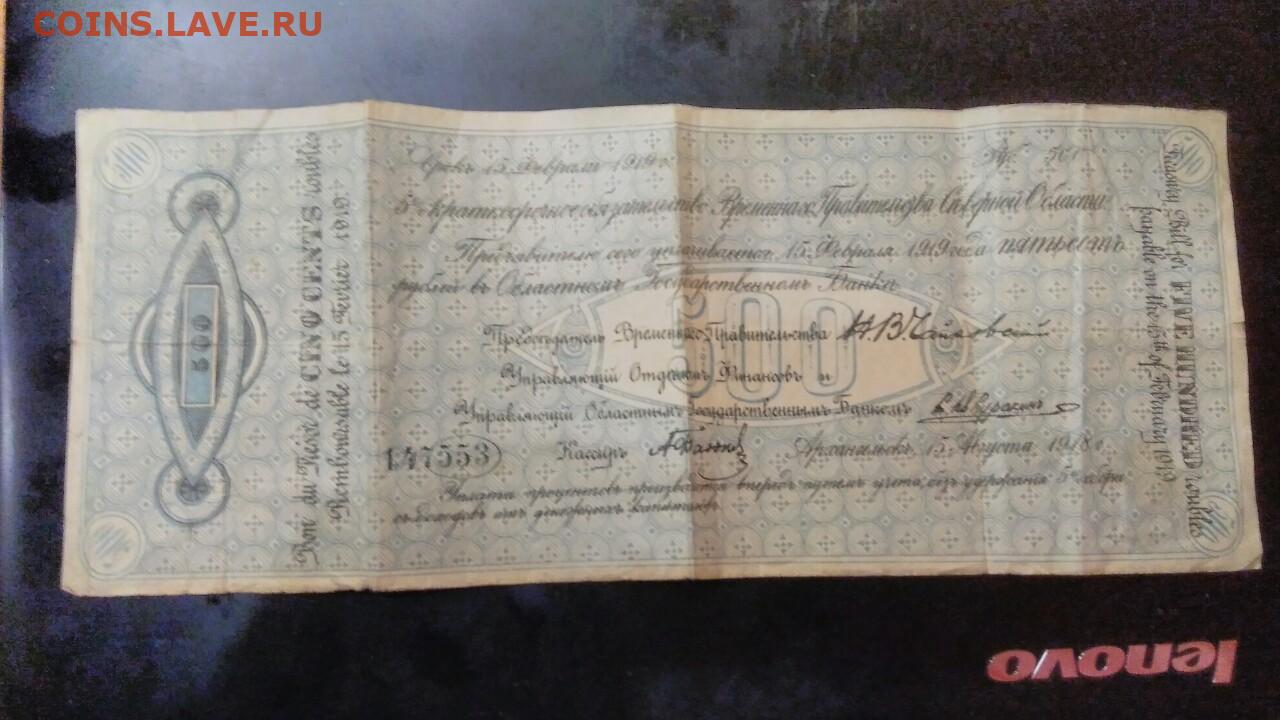 COINS.LAVE.RU
500
500
Bon du Trésor de CINQ CENTS roubles
Remboursable le 15 Février 1919
Срокъ 15 Февраля 1919 г.
Руб. 500
5% краткосрочное обязательство Временнаго Правительства Сѣверной Области
Предъявителю сего уплачивается 15 Февраля 1919 года пятьсотъ
рублей въ Областномъ Государственномъ Банкѣ
500
Предсѣдатель Временнаго Правительства Н.В.Чайковскій
Управляющій Отдѣломъ Финансовъ и
Управляющій Областнымъ Государственнымъ Банкомъ
147553
Кассиръ
Архангельскъ, 15 Августа 1918 г.
Уплата процентовъ производится впередъ путемъ учета, безъ удержанія 5% сбора
съ доходовъ отъ денежныхъ капиталовъ
Treasury Bill for FIVE HUNDRED roubles
payable on the 15th of February 1919
lenovo